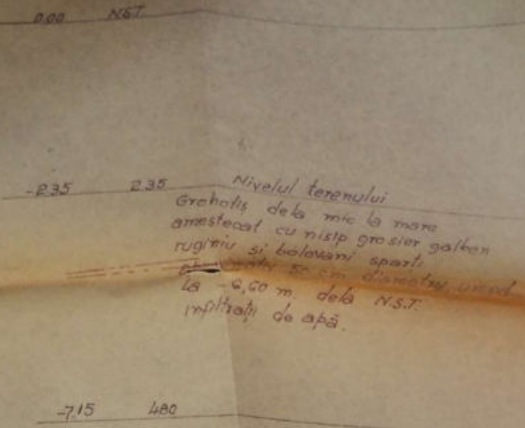 0.00 N.S.T.
-2.35 2.35 Nivelul terenului
Grohotiș dela mic la mare
amestecat cu nisip grosier galben
ruginiu și bolovani sparți
50 cm. diametru, uneori
la -6,60 m. dela N.S.T.
infiltrații de apă.
-7.15 4.80